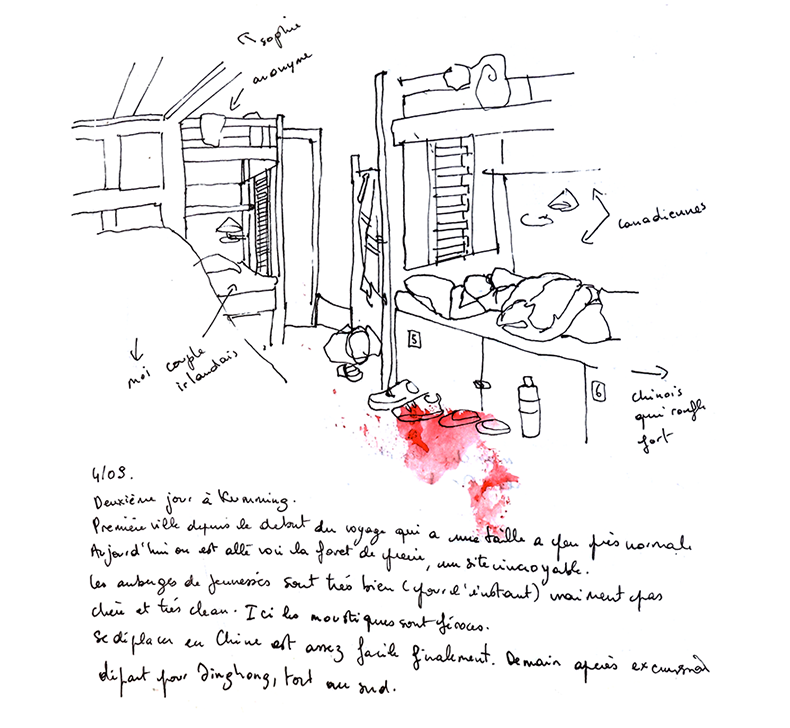 sophie
anonyme
canadiennes
moi
couple
irlandais
5
6
chinois
qui ronfle
fort
4/09.
Deuxième jour à Kunming.
Première ville depuis le debut du voyage qui a une taille a peu près normale
Aujourd'hui on est allé voir la foret de pierre, un site incroyable.
Les auberges de jeunesses sont trés bien (pour l'instant) vraiment pas
chère et trés clean. Ici les moustiques sont féroces.
Se déplacer en Chine est assez facile finalement. Demain après excursion
départ pour Jinghong, tout au sud.